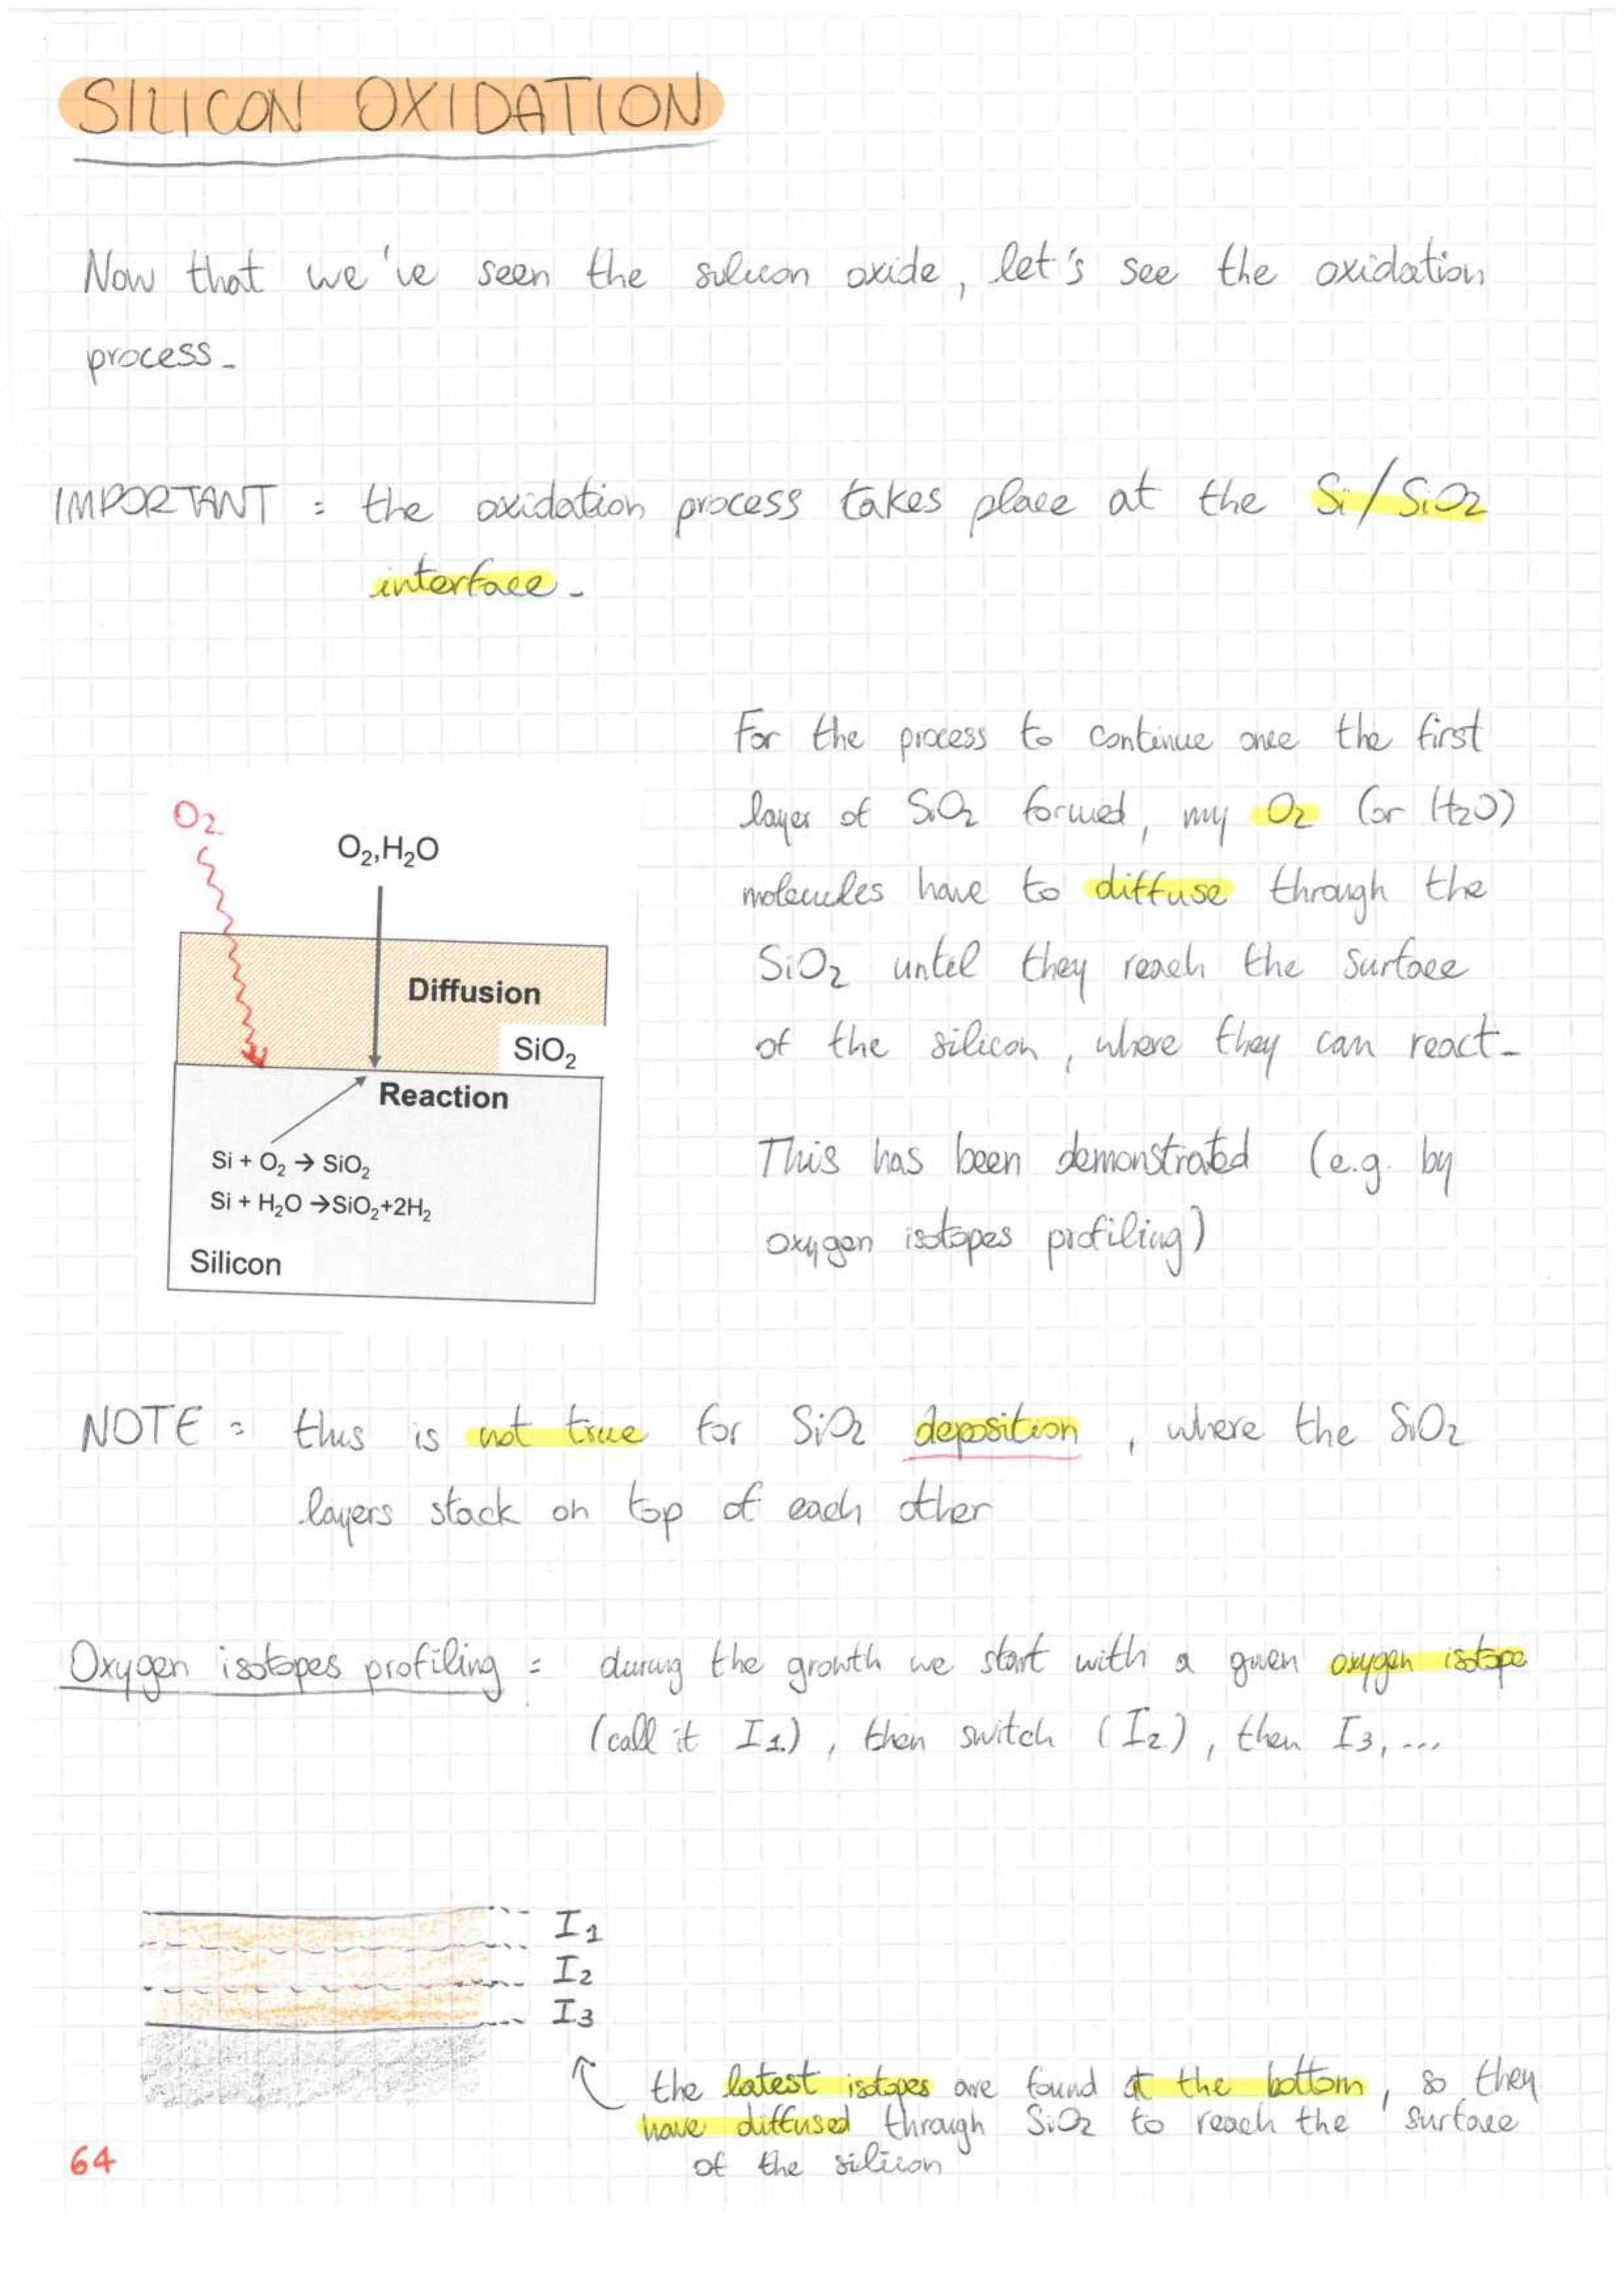 SILICON OXIDATION
Now that we've seen the silicon oxide, let's see the oxidation
process-
IMPORTANT : the oxidation process takes place at the Si/SiO2
interface-
For the process to continue once the first
layer of SiO2 formed, my O2 (or H2O)
molecules have to diffuse through the
SiO2 until they reach the surface
of the silicon, where they can react-
This has been demonstrated (e.g. by
oxygen isotopes profiling)
O2
O2,H2O
Diffusion
SiO2
Reaction
Si + O2 → SiO2
Si + H2O →SiO2+2H2
Silicon
NOTE : this is not true for SiO2 deposition, where the SiO2
layers stack on top of each other
Oxygen isotopes profiling : during the growth we start with a given oxygen isotope
(call it I1), then switch (I2), then I3, ...
I1
I2
I3
the latest isotopes are found at the bottom, so they
have diffused through SiO2 to reach the surface
of the silicon
64